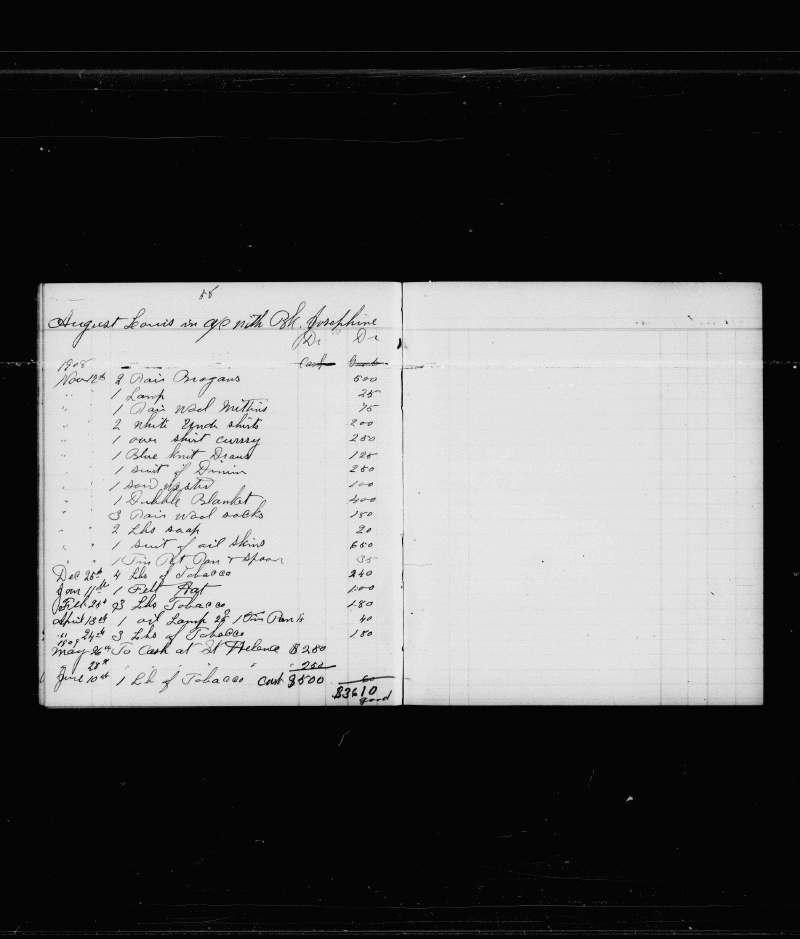 58
August Louis in a/c with Bk. Josephine
Dr Dr
1908 Cash Goods
Novr 12th 2 Pair Brogans 500
" " 1 Lamp 25
" " 1 Pair Wool Mittins 75
" " 2 White Under shirts 200
" " 1 over shirt 250
" " 1 Blue Knit Draws 125
" " 1 suit of Dinim 250
" " 1 100
" " 1 Dubble Blanket 400
" " 3 Pair Wool socks 150
" " 2 Lbs soap 20
" " 1 suit of oil skins 650
" " 1 Tin Pot Pan & spoon 35
Dec 25th 4 Lbs of Tobacco 240
Jan 11th 1 Felt Hat 100
Feb 25th 3 Lbs Tobacco 180
April 13th 1 oil Lamp 25 1 Tin Pan 40
" 24th 3 Lbs of Tobacco 180
1909
May 26th To Cash at St Helena $250
" 28th " " " " 250
June 10th 1 Lb of Tobacco Cash $500 60
$3610
good